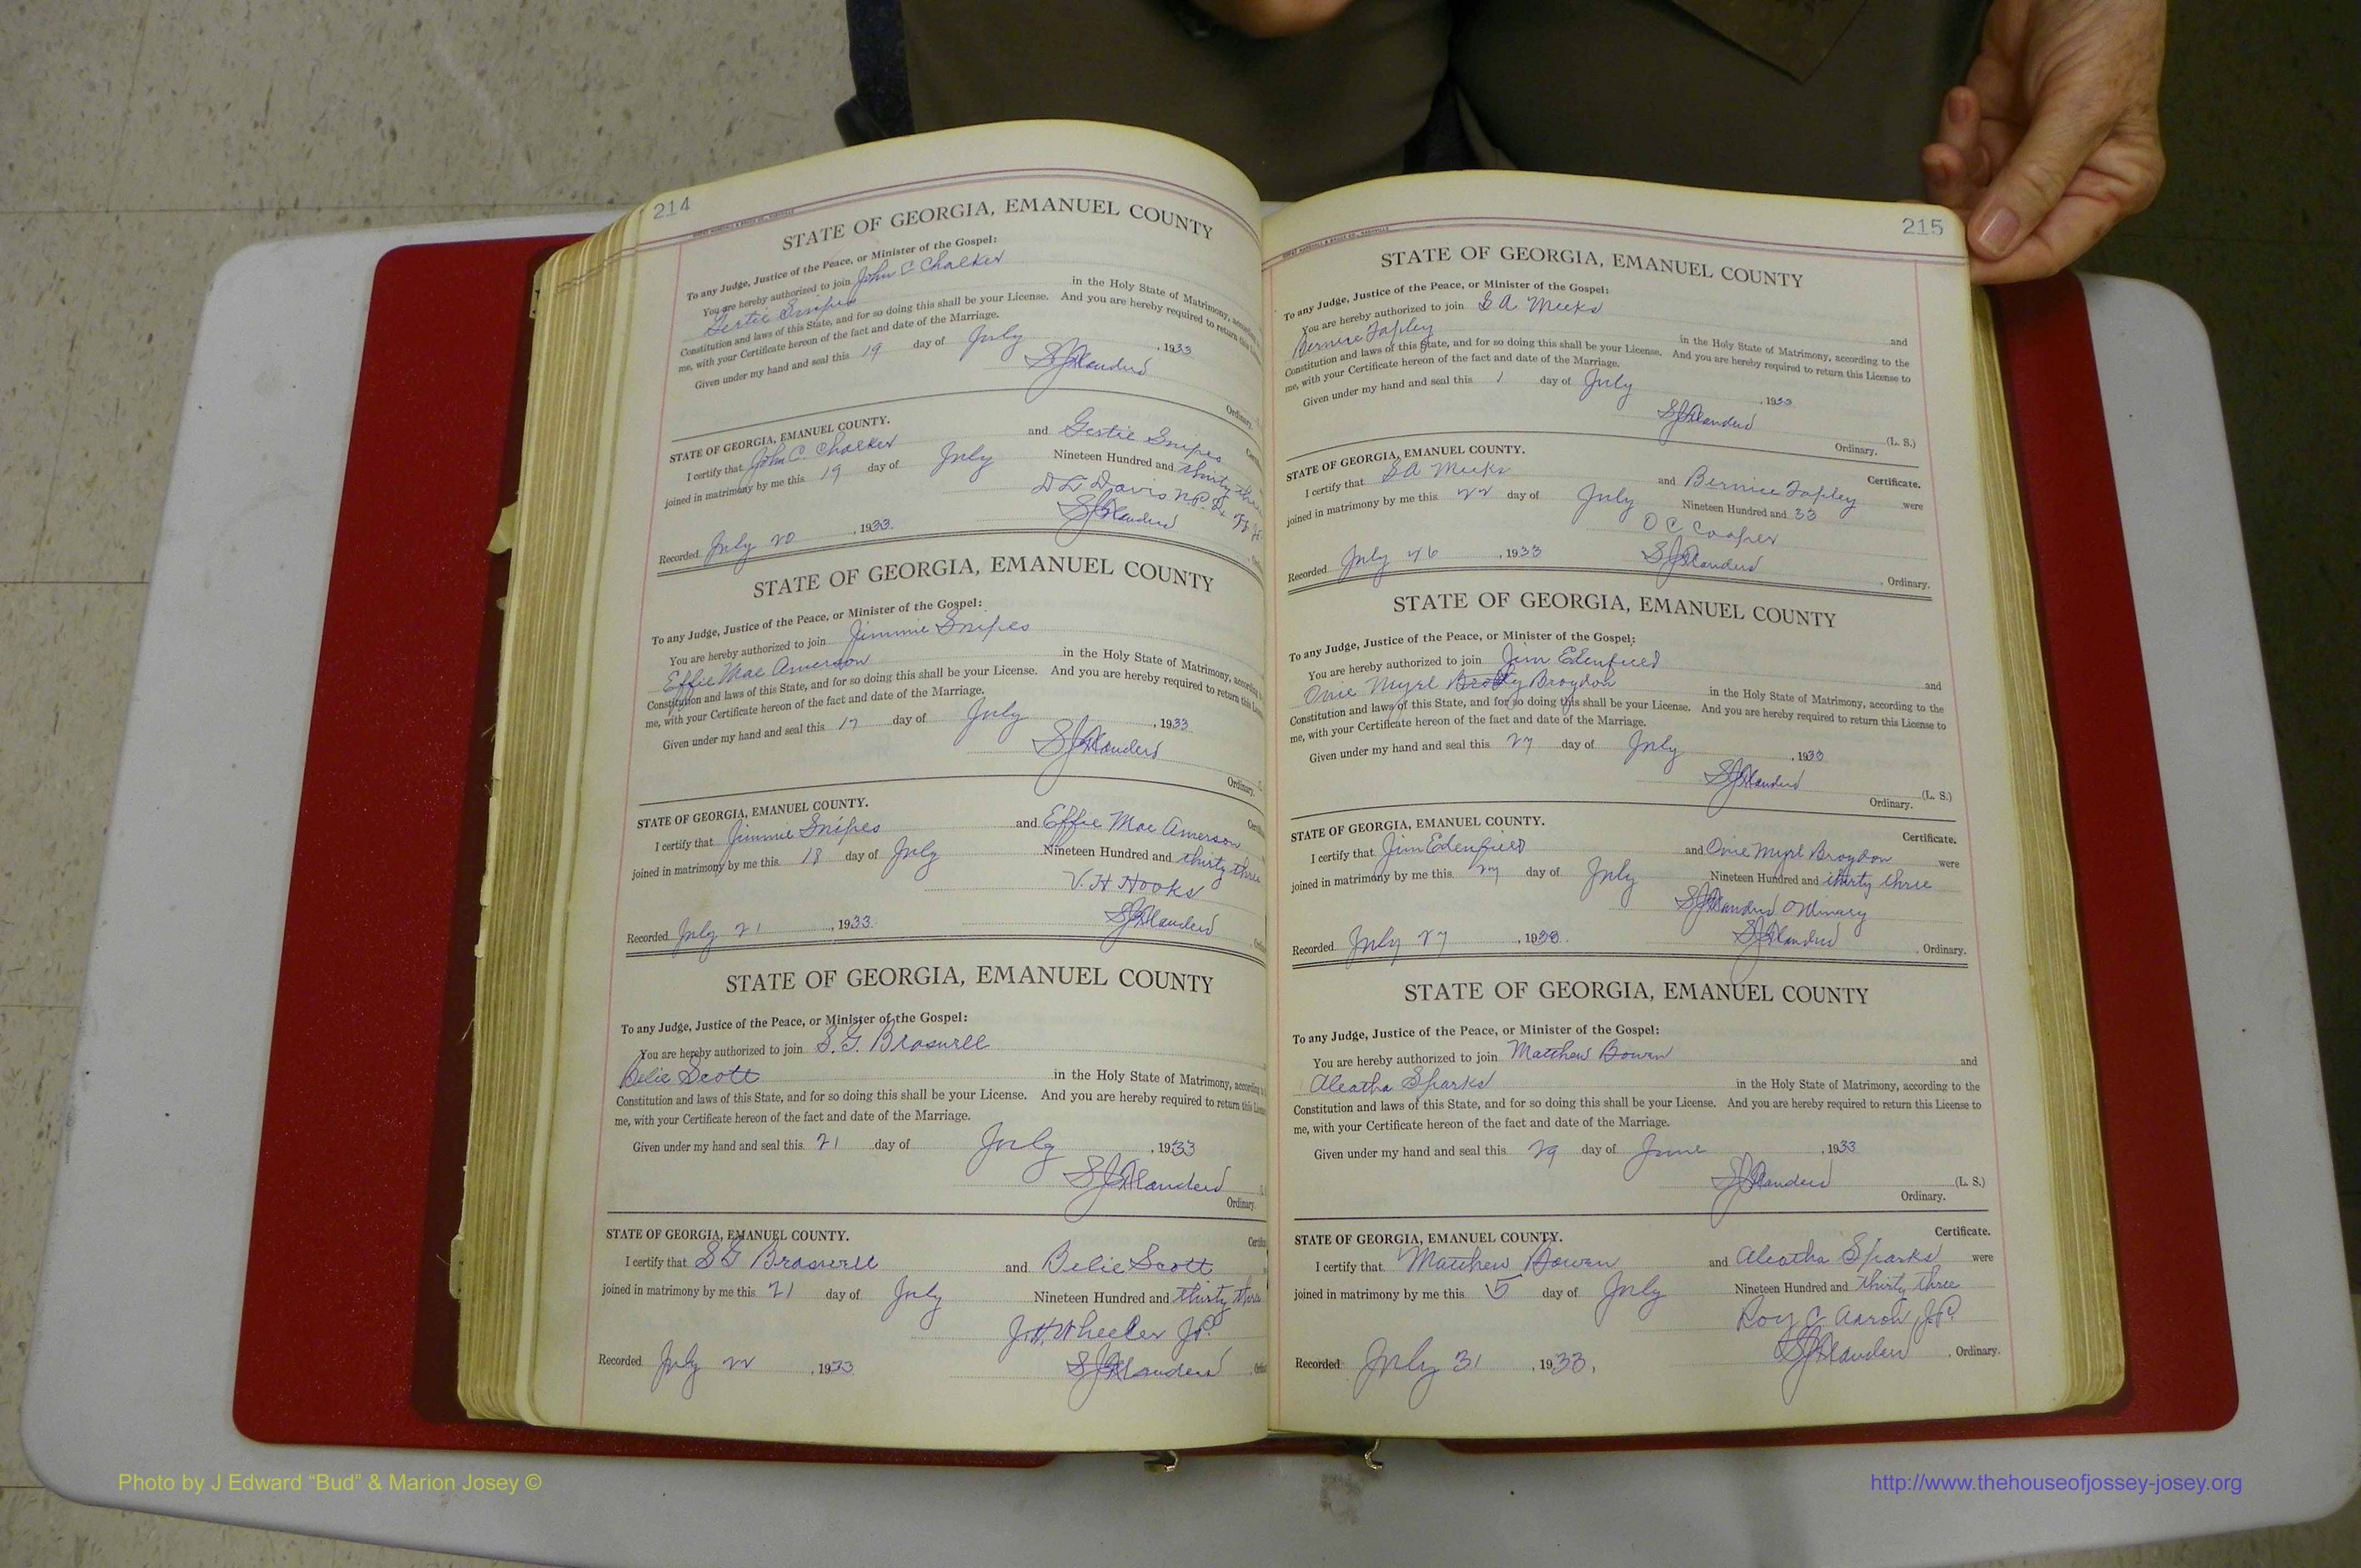 214
STATE OF GEORGIA, EMANUEL COUNTY
To any Judge, Justice of the Peace, or Minister of the Gospel:
You are hereby authorized to join John C Chalker
Gertie Snipes in the Holy State of Matrimony,
Constitution and laws of this State, and for so doing this shall be your License. And you are hereby required to return this
me, with your Certificate hereon of the fact and date of the Marriage.
Given under my hand and seal this 19 day of July , 1933
Ordinary.
STATE OF GEORGIA, EMANUEL COUNTY.
I certify that John C. Chalker and Gertie Snipes
joined in matrimony by me this 19 day of July Nineteen Hundred and thirty
D L Davis N.P.
Recorded July 20 , 1933.
STATE OF GEORGIA, EMANUEL COUNTY
To any Judge, Justice of the Peace, or Minister of the Gospel:
You are hereby authorized to join Jimmie Snipes
Effie Mae Amerson in the Holy State of Matrimony,
Constitution and laws of this State, and for so doing this shall be your License. And you are hereby required to return this
me, with your Certificate hereon of the fact and date of the Marriage.
Given under my hand and seal this 17 day of July , 1933
Ordinary.
STATE OF GEORGIA, EMANUEL COUNTY.
I certify that Jimmie Snipes and Effie Mae Amerson
joined in matrimony by me this 18 day of July Nineteen Hundred and thirty three
V. H Hooks
Recorded July 21 , 1933.
STATE OF GEORGIA, EMANUEL COUNTY
To any Judge, Justice of the Peace, or Minister of the Gospel:
You are hereby authorized to join S. G. Braswell
Belie Scott in the Holy State of Matrimony,
Constitution and laws of this State, and for so doing this shall be your License. And you are hereby required to return this
me, with your Certificate hereon of the fact and date of the Marriage.
Given under my hand and seal this 21 day of July , 1933
Ordinary.
STATE OF GEORGIA, EMANUEL COUNTY.
I certify that S G Braswell and Belie Scott
joined in matrimony by me this 21 day of July Nineteen Hundred and thirty
J. H. Wheeler J.P.
Recorded July 22 , 1933
215
STATE OF GEORGIA, EMANUEL COUNTY
To any Judge, Justice of the Peace, or Minister of the Gospel:
You are hereby authorized to join S A Meeks and
Bernice Tapley in the Holy State of Matrimony, according to the
Constitution and laws of this State, and for so doing this shall be your License. And you are hereby required to return this License to
me, with your Certificate hereon of the fact and date of the Marriage.
Given under my hand and seal this 1 day of July , 1933
(L. S.)
Ordinary.
STATE OF GEORGIA, EMANUEL COUNTY. Certificate.
I certify that S A Meeks and Bernice Tapley were
joined in matrimony by me this 22 day of July Nineteen Hundred and 33
O C Cooper
Recorded July 26 , 1933 Ordinary.
STATE OF GEORGIA, EMANUEL COUNTY
To any Judge, Justice of the Peace, or Minister of the Gospel:
You are hereby authorized to join Jim Edenfield and
Onie Myrl Brogdon in the Holy State of Matrimony, according to the
Constitution and laws of this State, and for so doing this shall be your License. And you are hereby required to return this License to
me, with your Certificate hereon of the fact and date of the Marriage.
Given under my hand and seal this 27 day of July , 1933
(L. S.)
Ordinary.
STATE OF GEORGIA, EMANUEL COUNTY. Certificate.
I certify that Jim Edenfield and Onie Myrl Brogdon were
joined in matrimony by me this 27 day of July Nineteen Hundred and thirty three
Ordinary
Recorded July 27 , 1933. Ordinary.
STATE OF GEORGIA, EMANUEL COUNTY
To any Judge, Justice of the Peace, or Minister of the Gospel:
You are hereby authorized to join Matthew Bowen and
Aleatha Sparks in the Holy State of Matrimony, according to the
Constitution and laws of this State, and for so doing this shall be your License. And you are hereby required to return this License to
me, with your Certificate hereon of the fact and date of the Marriage.
Given under my hand and seal this 29 day of June , 1933
(L. S.)
Ordinary.
STATE OF GEORGIA, EMANUEL COUNTY. Certificate.
I certify that Matthew Bowen and Aleatha Sparks were
joined in matrimony by me this 5 day of July Nineteen Hundred and thirty three
Roy C Aaron, J.P.
Recorded July 31 , 1933, Ordinary.
Photo by J Edward “Bud” & Marion Josey ©
http://www.thehouseofjossey-josey.org